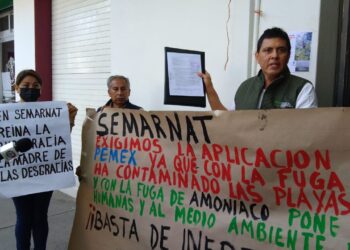 EN SEMARNAT
REINA LA
CRACIA
MADRE DE
LAS DESGRACIAS
SEMARNAT
EXIGIMOS LA APLICACION
PEMEX YA QUE CON LA FUGA
HA CONTAMINADO LAS PLAYAS
Y CON LA FUGA DE AMONIACO PONE
HUMANAS Y AL MEDIO AMBIENTE
¡BASTA DE